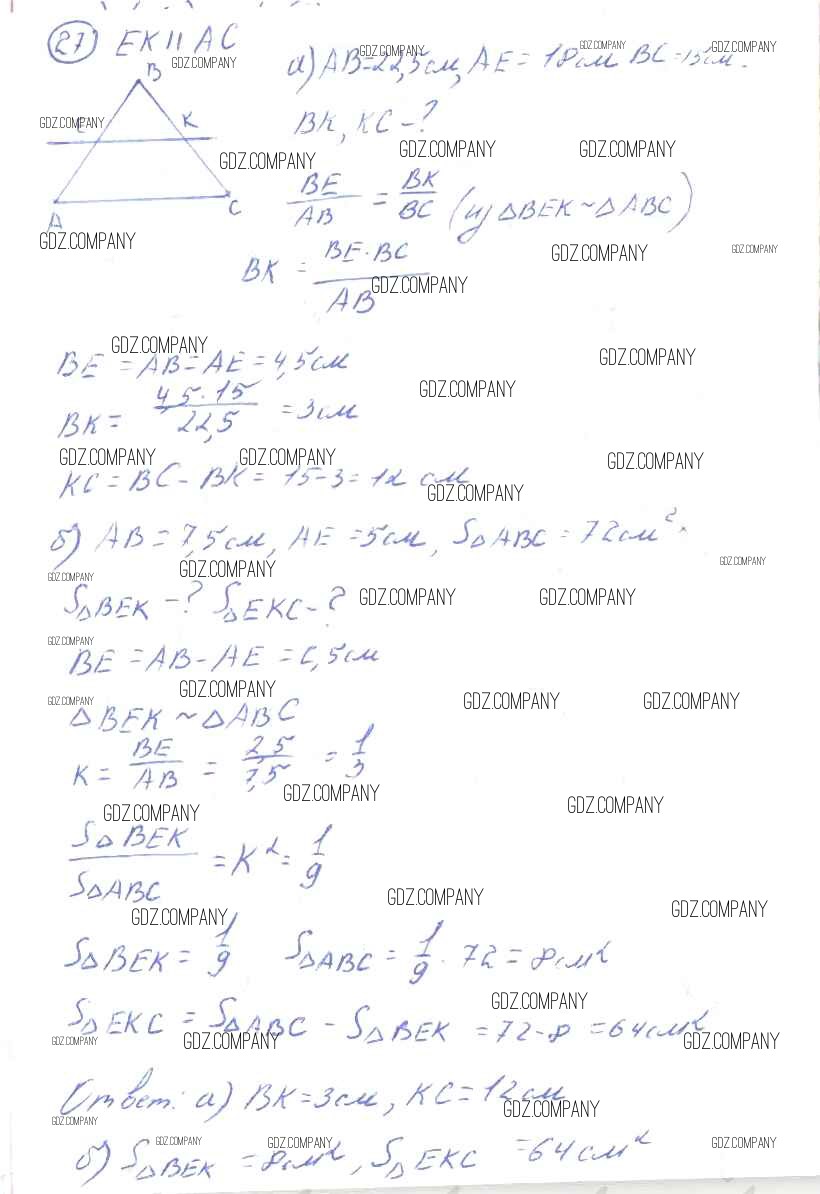 27 EK || AC
а) AB = 22,5 см, AE = 18 см BC = 15 см.
B
E K
A C
BK, KC - ?
BE/AB = BK/BC (из △BEK ~ △ABC)
BK = BE · BC / AB
BE = AB - AE = 4,5 см
BK = 4,5 · 15 / 22,5 = 3 см
KC = BC - BK = 15 - 3 = 12 см
б) AB = 7,5 см, AE = 5 см, S△ABC = 72 см²
S△BEK - ? S△EKC - ?
BE = AB - AE = 2,5 см
△BEK ~ △ABC
K = BE/AB = 2,5/7,5 = 1/3
S△BEK/S△ABC = K² = 1/9
S△BEK = 1/9 S△ABC = 1/9 · 72 = 8 см²
S△EKC = S△ABC - S△BEK = 72 - 8 = 64 см²
Ответ: а) BK = 3 см, KC = 12 см
б) S△BEK = 8 см², S△EKC = 64 см²
GDZ.COMPANY